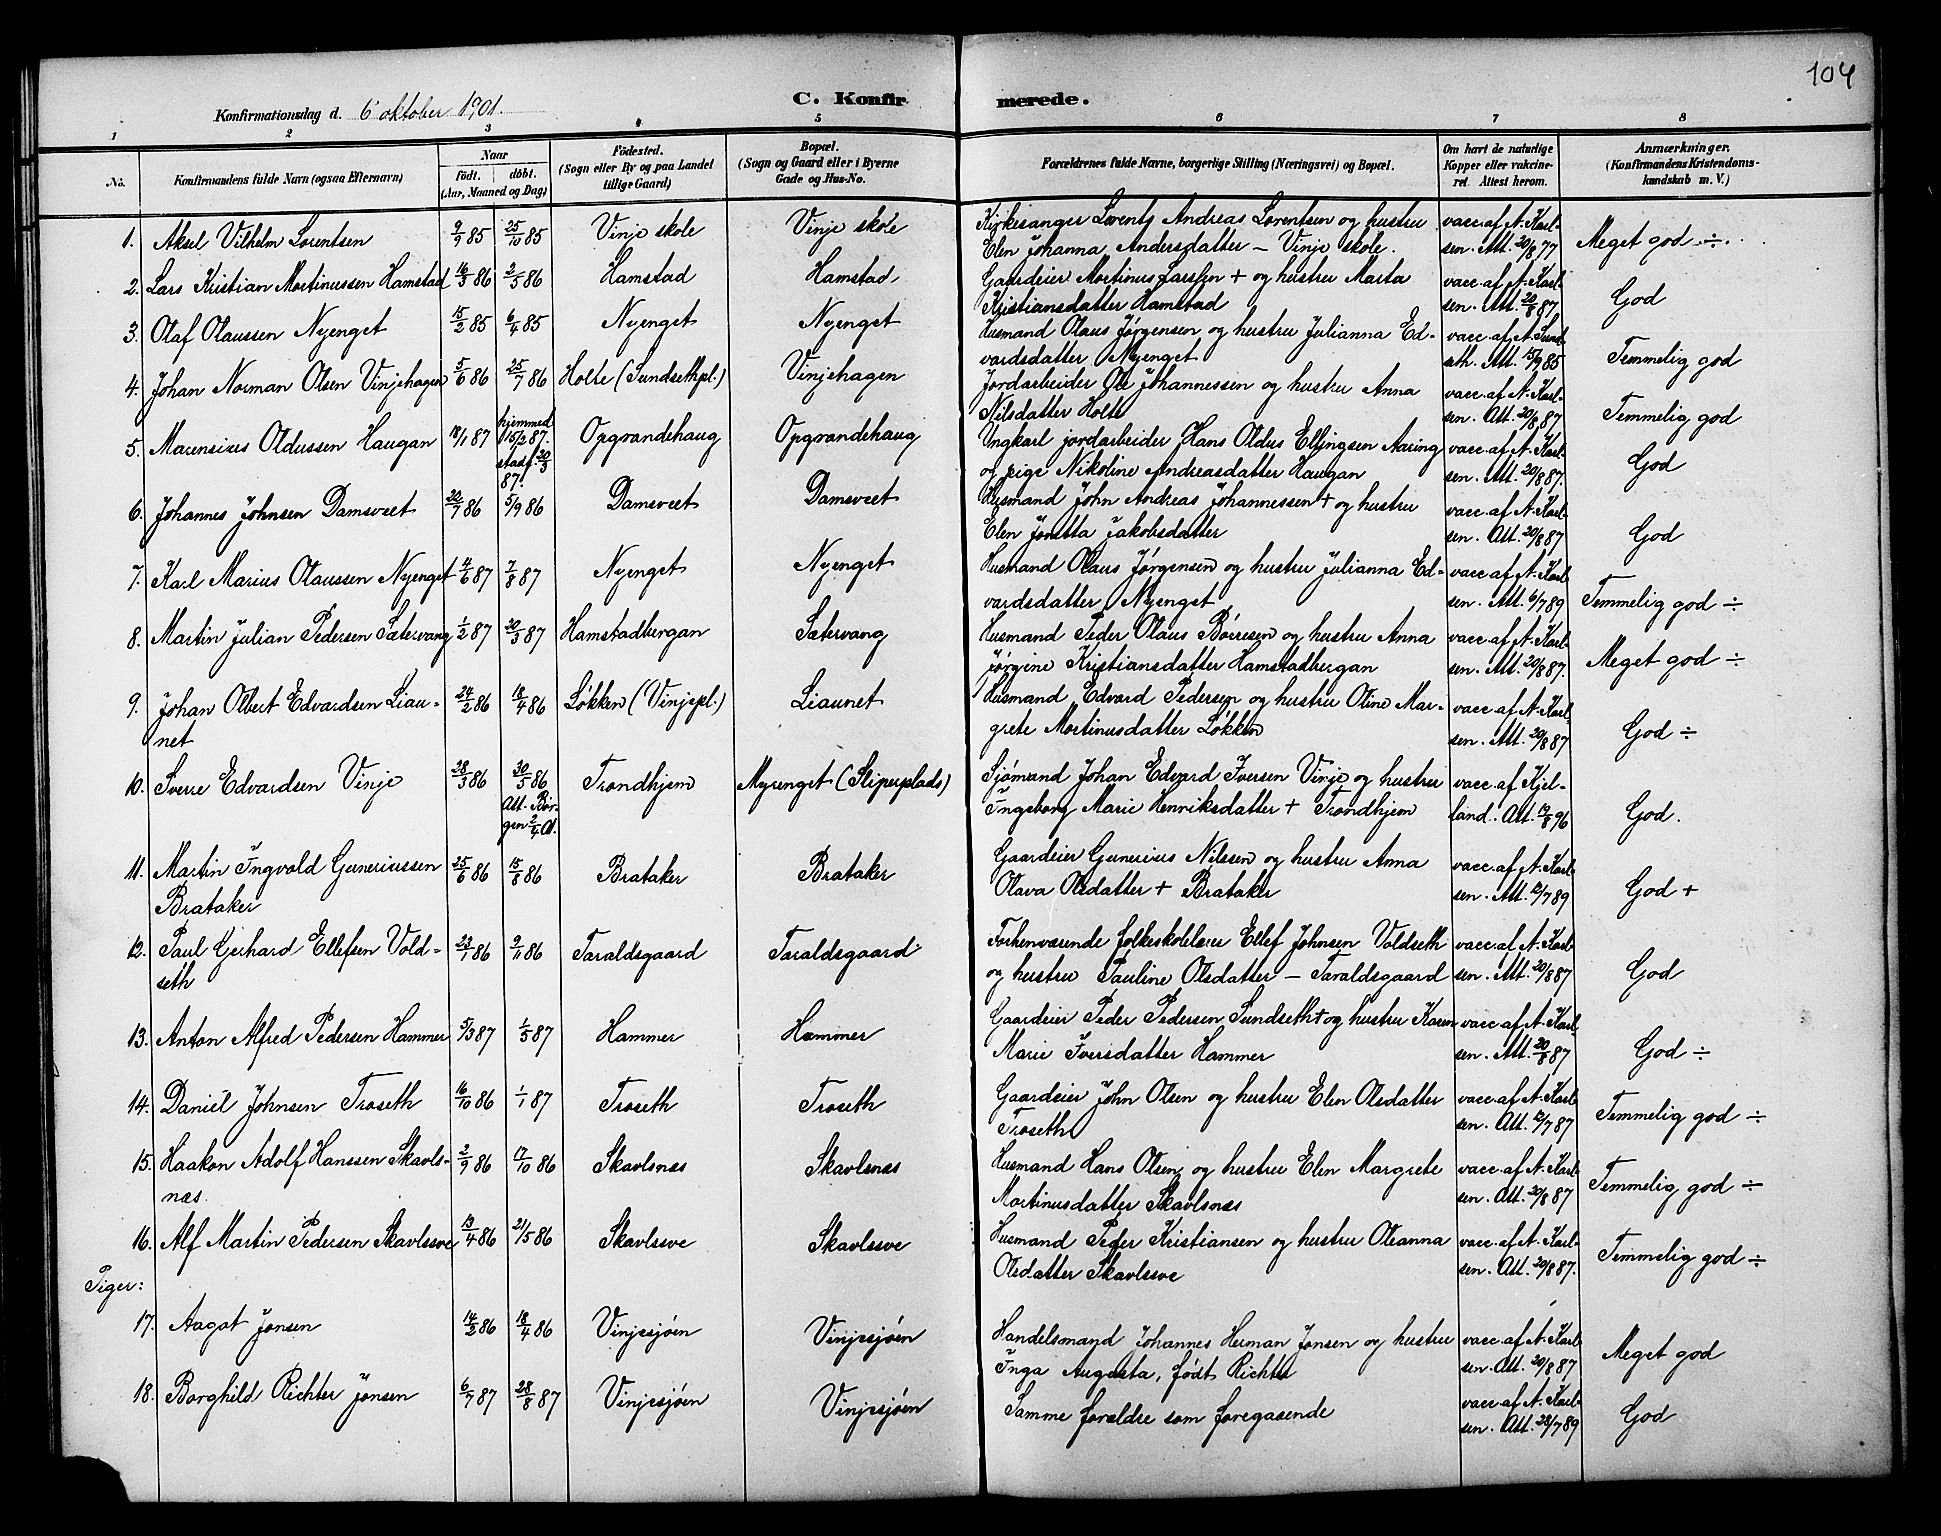 104
Konfirmationsdag d. 6 oktober 1901.
C. Konfir merede.
1 2 3 4 5 6 7 8
No.
Konfirmandens fulde Navn (ogsaa Efternavn)
Naar
født. døbt.
(Aar, Maaned og Dag)
Födested.
(Sogn eller By og paa Landet
tillige Gaard)
Bopæl.
(Sogn og Gaard eller i Byerne
Gade og Hus-No.
Forældrenes fulde Navne, borgerlige Stilling (Næringsvei) og Bopæl.
Om havt de naturlige
Kopper eller vakcine-
ret. Attest herom.
Anmærkninger.
(Konfirmandens Kristendoms-
kundskab m. V.)
1. Aksel Vilhelm Lorentsen 9/9 85 25/10 85 Vinje skole Vinje skole Kirkesanger Lorents Andreas Lorentsen og hustru vacc. af A. Karl-
Elen Johanna Andersdatter – Vinje skole. sen. Att. 20/8 77 Meget god ÷
2. Lars Kristian Martinussen Hamstad 16/3 86 2/5 86 Hamstad Hamstad Gaardeier Martinus Larssen + og hustru Marta vacc. af A. Karl-
Kristiansdatter Hamstad sen. Att. 20/8 87 God
3. Olaf Olaussen Nyenget 15/2 85 6/4 85 Nyenget Nyenget Husmand Olaus Jørgensen og hustru Julianna Ed- vacc. af A. Sund-
vardsdatter Nyenget seth. Att. 15/9 85 Temmelig god
4. Johan Norman Olsen Vinjehagen 5/6 86 25/7 86 Holte (Sundsethpl.) Vinjehagen Jordarbeider Ole Johannessen og hustru Anna vacc. af A. Karl-
Nilsdatter Holte sen. Att. 20/8 87 Temmelig god
5. Marensius Oldussen Haugan 18/1 87 hjemmed
15/2 87.
stadf. 20/3
87. Opgrandehaug Opgrandehaug Ungkarl jordarbeider Hans Oldus Ellingsen Aaring vacc. af A. Karl-
og pige Nikoline Andreasdatter Haugan sen. Att. 20/8 87. God
6. Johannes Johnsen Damsveet 20/7 86 5/9 86 Damsveet Damsveet Husmand John Andreas Johannessen + og hustru vacc. af A. Karl-
Elen Jonetta Jakobsdatter sen. Att. 20/8 87 God
7. Karl Marius Olaussen Nyenget 4/6 87 7/8 87 Nyenget Nyenget Husmand Olaus Jørgensen og hustru Julianna Ed- vacc. af A. Karl-
vardsdatter Nyenget sen. Att. 6/7 89 Temmelig god ÷
8. Martin Julian Pedersen Sætervang 1/2 87 20/3 87 Hamstadbergan Sætervang Husmand Peder Olaus Børresen og hustru Anna vacc. af A. Karl-
Jørgine Kristiansdatter Hamstadbergan sen. Att. 20/8 87. Meget god ÷
9. Johan Olbert Edvardsen Liau- 24/2 86 18/4 86 Løkken (Vinjepl.) Liaunet Husmand Edvard Pedersen og hustru Oline Mar- vacc. af A. Karl-
net grete Martinusdatter Løkken sen. Att. 20/8 87 God ÷
10. Sverre Edvardsen Vinje 28/3 86 30/5 86
Att. Bør-
gen 2/4 01. Trondhjem Myrenget (Sliperplads) Sjómand Johan Edvard Iversen Vinje og hustru vacc. af Kjel-
Ingeborg Marie Henriksdatter + Trondhjem land. Att. 19/8 96 God.
11. Martin Ingvald Guneriussen 25/6 86 15/8 86 Brataker Brataker Gaardeier Gunerius Nilsen og hustru Anna vacc. af A. Karl-
Brataker Olava Olsdatter + Brataker sen. Att. 6/7 89 God +
12. Paul Gerhard Ellefsen Vold- 23/1 86 9/11 86 Taraldsgaard Taraldsgaard Forhenværende folkeskolelærer Ellef Johnsen Voldseth vacc. af A. Karl-
seth og hustru Pauline Olsdatter – Taraldsgaard sen. Att. 20/8 87 God
13. Anton Alfred Pedersen Hammer 5/3 87 1/5 87 Hammer Hammer Gaardeier Peder Pedersen Sundseth + og hustru Karen vacc. af A. Karl-
Marie Iversdatter Hammer sen. Att. 20/8 87 God ÷
14. Daniel Johnsen Troseth 16/10 86 1/1 87 Troseth Troseth Gaardeier John Olsen og hustru Elen Olsdatter vacc. af A. Karl-
Troseth sen. Att. 6/7 87 Temmelig god ÷
15. Haakon Adolf Hanssen Skavls- 2/9 86 17/10 86 Skavlsnæs Skavlsnæs Husmand Hans Olsen og hustru Elen Margrete vacc. af A. Karl-
næs. Martinusdatter Skavlsnæs sen. Att. 20/8 87 Temmelig god ÷
16. Alf Martin Pedersen Skavlssve 13/4 86 21/5 86 Skavlssve Skavlssve Husmand Peder Kristiansen og hustru Oleanna vacc. af A. Karl-
Olsdatter Skavlssve sen. Att. 20/8 87. Temmelig god ÷
Piger:
17. Aagot Jonsen 14/2 86 18/4 86 Vinjesjøen Vinjesjøen Handelsmand Johannes Herman Jonsen og hustru vacc. af A. Karl-
Inga Augusta, født Richter sen. Att. 20/8 87 Meget god
18. Borghild Richter Jonsen 6/7 87 28/8 87 Vinjesjøen Vinjesjøen Samme forældre som foregaaende vacc. af A. Karl-
sen. Att. 28/7 89 God